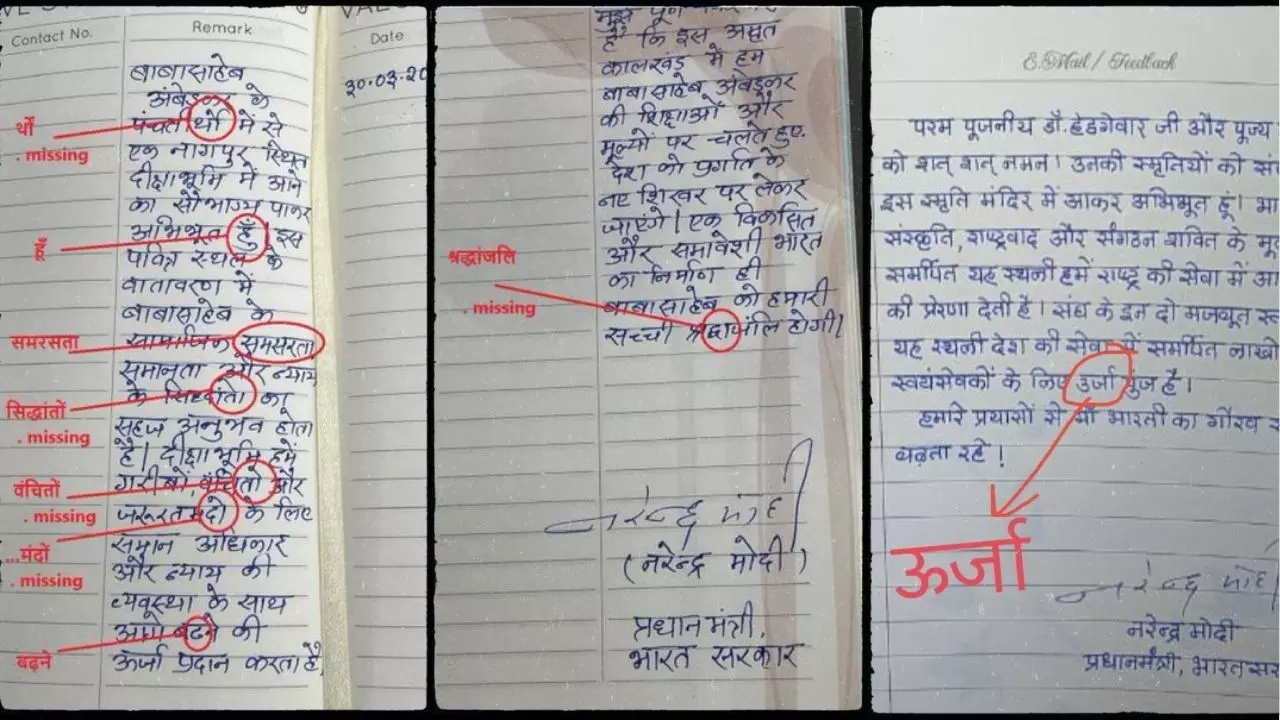 Contact No.
Remark
Date
30-03-20
बाबासाहेब
अंबेडकर के
पंचतीर्थो में से
एक नागपुर स्थित
दीक्षाभूमि में आने
का सौभाग्य पाकर
अभिभूत हुँ। इस
पवित्र स्थल के
वातावरण में
बाबासाहेब के
सामाजिक समसरता
समानता और न्याय
के सिद्धांतो का
सहज अनुभव होता
है। दीक्षाभूमि हमें
गरीबों, वंचितो और
जरूरतमंदो के लिए
समान अधिकार
और न्याय की
व्यवस्था के साथ
आगे बढने की
ऊर्जा प्रदान करता है,
र्थों
. missing
हूँ
समरसता
सिद्धांतों
. missing
वंचितों
. missing
...मंदों
. missing
बढ़ने
मुझे पूर्ण
है कि इस अमृत
कालखंड में हम
बाबासाहेब अंबेडकर
की शिक्षाओं और
मूल्यों पर चलते हुए
देश को प्रगति के
नए शिखर पर लेकर
जाएंगे। एक विकसित
और समावेशी भारत
का निर्माण ही
बाबासाहेब को हमारी
सच्ची श्रद्धाजंलि होगी।
श्रद्धांजलि
. missing
नरेन्द्र मोदी
(नरेन्द्र मोदी)
प्रधानमंत्री,
भारत सरकार
E.Mail / Feedback
परम पूजनीय डॉ. हेडगेवार जी और पूज्य
को शत् शत् नमन। उनकी स्मृतियों को सं
इस स्मृति मंदिर में आकर अभिभूत हूं। भा
संस्कृति, राष्ट्रवाद और संगठन शक्ति के मू
समर्पित यह स्थली हमें राष्ट्र की सेवा में आ
की प्रेरणा देती है। संघ के इन दो मजबूत स्त
यह स्थली देश की सेवा में समर्पित लाखों
स्वयंसेवकों के लिए उर्जा पुंज है।
हमारे प्रयासों से माँ भारती का गौरव स
बढ़ता रहे!
ऊर्जा
नरेन्द्र मोदी
नरेन्द्र मोदी
प्रधानमंत्री, भारत सर